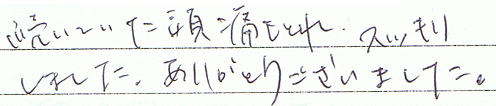 続いていた頭痛もとれ、スッキリ
しました。ありがとうございました。